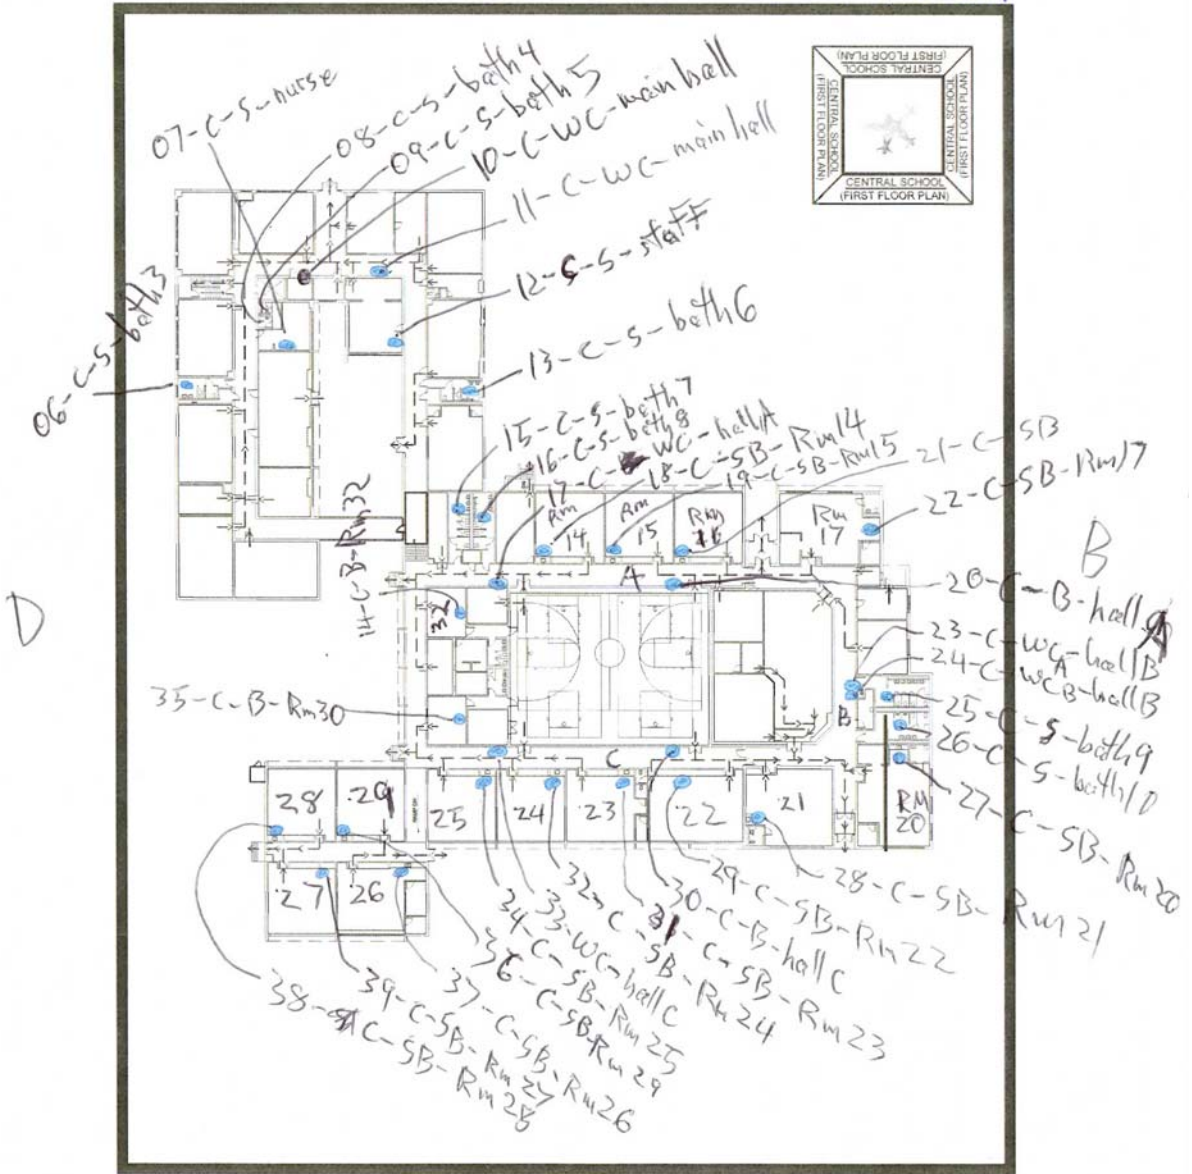 CENTRAL SCHOOL
(FIRST FLOOR PLAN)
CENTRAL SCHOOL
(FIRST FLOOR PLAN)
CENTRAL SCHOOL
(FIRST FLOOR PLAN)
CENTRAL SCHOOL
(FIRST FLOOR PLAN)
07-C-S-nurse
08-C-S-bath4
09-C-S-bath5
10-C-WC-main hall
11-C-WC-main hall
12-C-S-staff
06-C-S-bath3
13-C-S-bath6
15-C-S-bath7
16-C-S-bath8
17-C-WC-hallA
18-C-SB-Rm14
19-C-SB-Rm15
21-C-SB
22-C-SB-Rm17
Rm
14
Rm
15
Rm
16
Rm
17
B
D
A
14-C-B-Rm32
20-C-B-hallA
23-C-WC-hallB
24-C-WC-hallB
A
B
B
25-C-S-bath9
26-C-S-bath10
27-C-SB-Rm20
35-C-B-Rm30
C
28
29
25
24
23
22
21
RM
20
27
26
28-C-SB-Rm21
29-C-SB-Rm22
30-C-B-hallC
31-C-SB-Rm23
32-C-SB-Rm24
33-WC-hallC
34-C-SB-Rm25
36-C-SB-Rm29
37-C-SB-Rm26
39-C-SB-Rm27
38-C-SB-Rm28